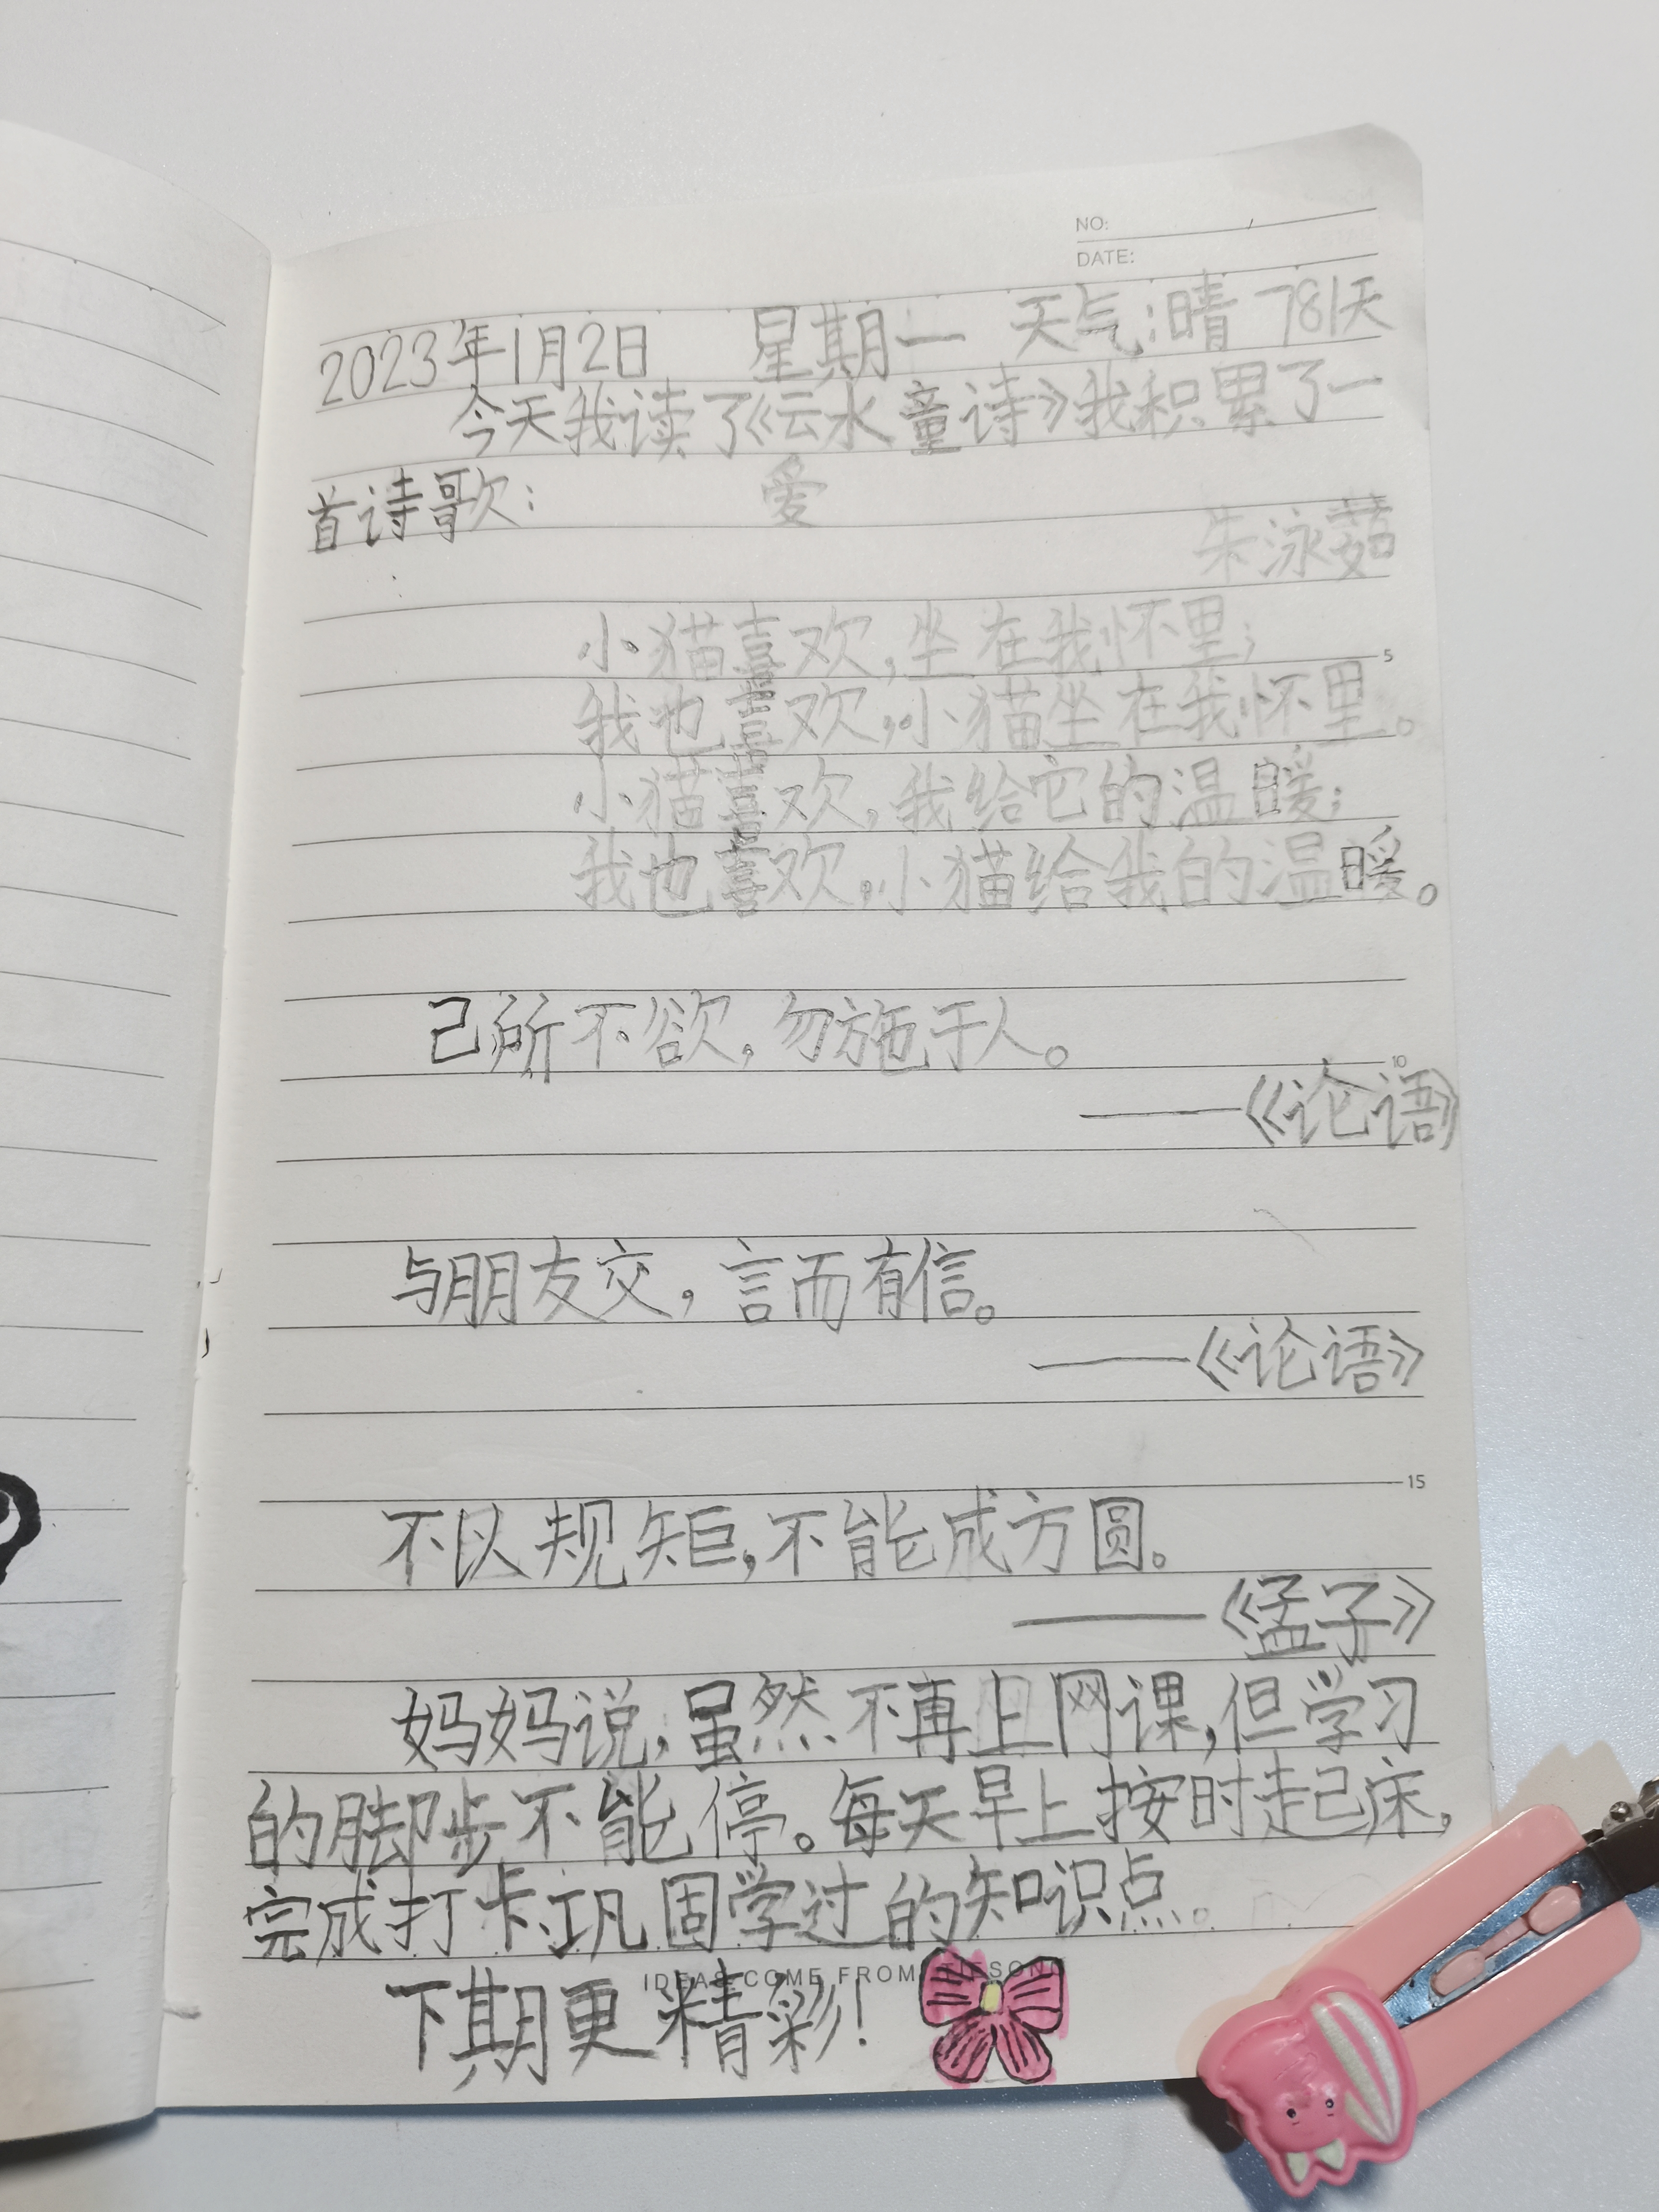 NO:
DATE:
2023年1月2日 星期一 天气:晴 781天
今天我读了《云水童诗》我积累了一
首诗歌: 爱
朱泳菇
小猫喜欢,坐在我怀里;
5
我也喜欢,小猫坐在我怀里。
小猫喜欢,我给它的温暖;
我也喜欢,小猫给我的温暖。
己所不欲,勿施于人。
10
——《论语》
与朋友交,言而有信。
——《论语》
15
不以规矩,不能成方圆。
——《孟子》
妈妈说,虽然不再上网课,但学习
的脚步不能停。每天早上按时起床,
完成打卡、巩固学过的知识点。
IDEAS COME FROM
下期更精彩!